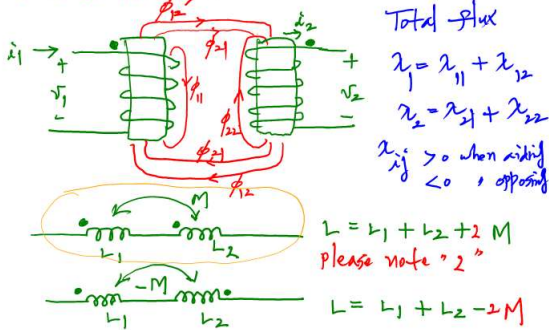 ϕ12
ϕ21
i1
i2
+
v1
-
ϕ11
ϕ22
+
v2
-
ϕ21
ϕ12
Total flux
λ1 = λ11 + λ12
λ2 = λ21 + λ22
λij > 0 when aiding
< 0 " opposing
M
L1
L2
L = L1 + L2 + 2 M
please note "2"
-M
L1
L2
L = L1 + L2 - 2M